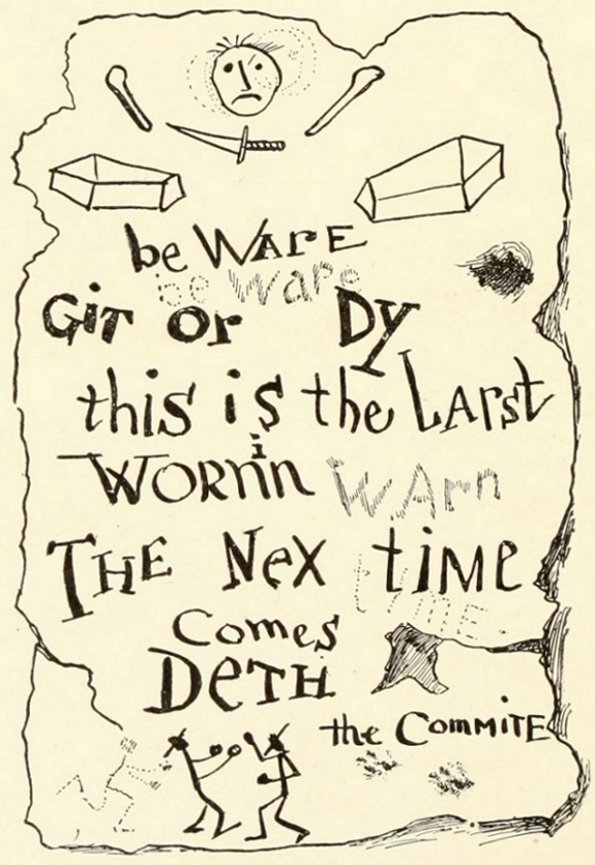 be WArE
be Ware
GiT or DY
this is the LArst
WORNin WArn
THE Nex tiME
tiME.
Comes
DeTH
the CommiTE